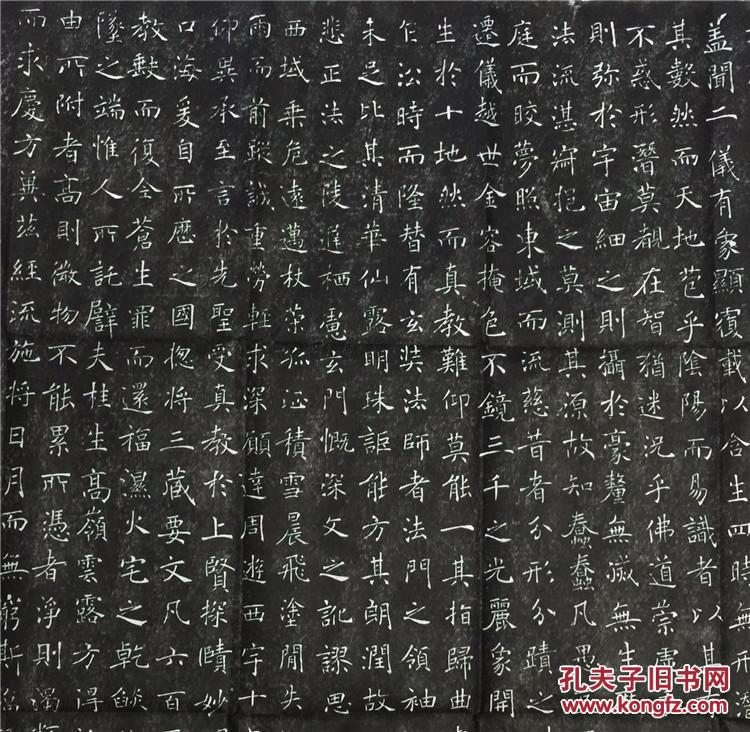 蓋聞二儀有象顯覆載以含生四時無形潛
其數然而天地苞乎陰陽而易識者以其
不惑形潛莫覩在智猶迷況乎佛道崇虛
則弥於宇宙細之則攝於豪釐無滅無生
法流湛寂挹之莫測其源故知蠢蠢凡愚
庭而皎夢照東域而流慈昔者分形分蹟之
遷儀越世金容掩色不鏡三千之光麗象開
生於十地然而真教難仰莫能一其指歸曲
訟時而隆替有玄奘法師者法門之領袖
未足比其清華仙露明珠詎能方其朗潤故
悲正法之陵遲栖慮玄門慨深文之訛謬思
西域乘危遠邁杖策孤征積雪晨飛塗閒失
雨而前蹤誠重勞輕求深願達周遊西宇十
仰異承至言於先聖受真教於上賢探賾妙
口海爰自所歷之國揔將三藏要文凡六百
教缺而復全蒼生罪而還福濕火宅之乾燄
墜之端惟人所託譬夫桂生高嶺雲露方得
由所附者高則微物不能累所憑者淨則濁
而求慶方冀茲經流施將日月而無窮斯
孔夫子旧书网
www.kongfz.com